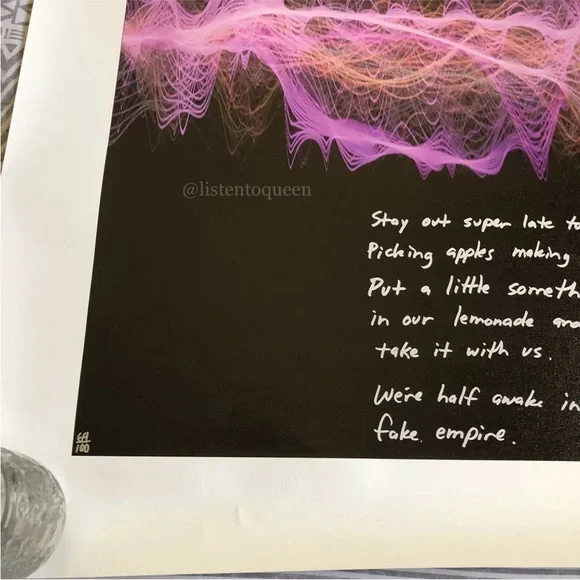 @listentoqueen
Stay out super late
Picking apples making
Put a little
in our lemonade
take it with us.
We're half awake in
fake empire.
100